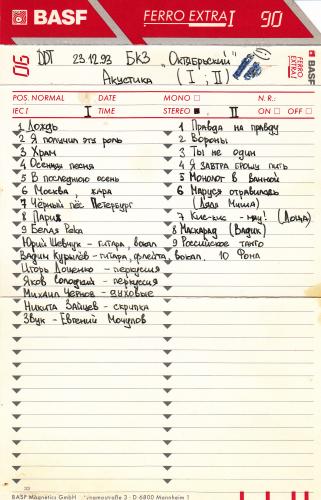 BASF FERRO EXTRA I 90
90 ДДТ 23.12.93 БКЗ "Октябрьский"
Акустика (I ; II)
FERRO EXTRA I BASF
POS. NORMAL DATE MONO N.R.:
IEC I I TIME STEREO II ON OFF
1 Дождь
2 Я получил эту роль
3 Храм
4 Осенняя песня
5 В последнюю осень
6 Москва, жара
7 Чёрный пёс Петербург
8 Париж
9 Белая Река
Юрий Шевчук - гитара, вокал
Вадим Курылёв - гитара, флейта, вокал.
Игорь Доценко - перкуссия
Яков Солодкий - перкуссия
Михаил Чернов - духовые
Никита Зайцев - скрипка
Звук - Евгений Мочулов
1 Правда на правду
2 Вороны
3 Ты не один
4 Я завтра брошу пить
5 Монолог в ванной
6 Маруся отравилась
(Дядя Миша)
7 Кис-кис - мяу! (Доца)
8 Маскарад (Вадик)
9 Российское танго
10 Фома
BASF Magnetics GmbH · Dynamostraße 3 · D-6800 Mannheim 1